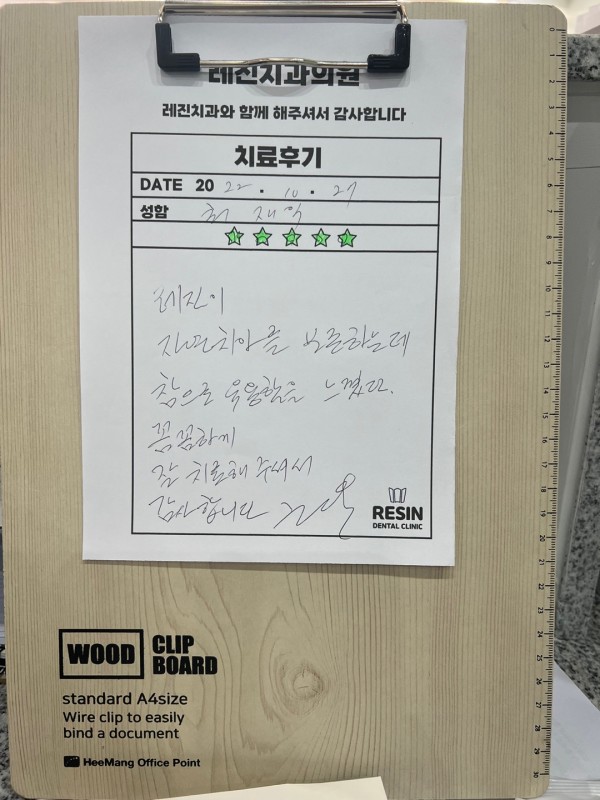 레진치과의원
레진치과와 함께 해주셔서 감사합니다
치료후기
DATE 20 22 . 10 . 27
성함 최재익
레진이
자연치아를 보존하는데
참으로 유용함을 느꼈다.
꼼꼼하게
잘 치료해 주셔서
감사합니다
RESIN
DENTAL CLINIC
WOOD CLIP BOARD
standard A4size
Wire clip to easily
bind a document
HeeMang Office Point
0 1 2 3 4 5 6 7 8 9 10 11 12 13 14 15 16 17 18 19 20 21 22 23 24 25 26 27 28 29 30